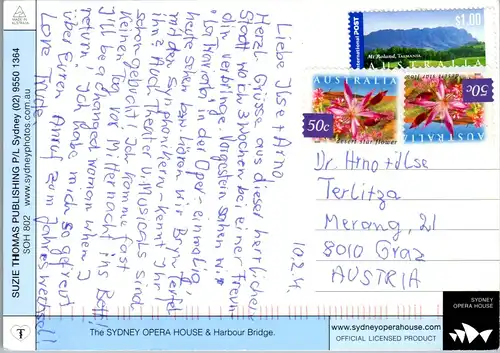 MADE IN
AUSTRALIA
SUZIE THOMAS PUBLISHING P/L Sydney (02) 9550 1364
SOH 802 www.suziethomas.com.au
Liebe Ilse + Arno
Herzl. Grüsse aus dieser herrlichen
Stadt wo ich 3 Wochen bei einer Freundin
verbringe. Vorgestern sahen wir
"La Traviata" in der Oper - einmalig,
heute sind wir
mit den Symphonikern - Kennt Ihr
ihn? Auch Theater u. Musicals sind
schon gebucht. Ich komme fast
keinen Tag vor Mitternacht ins Bett!
I'll be a changed woman when I
return. Ich habe mich so gefreut
über Euren Anruf zum Jahreswechsel!
Love Trude
International POST
$1.00
Mt Roland, TASMANIA
AUSTRALIA
50c
AUSTRALIA
50c
AUSTRALIA
Dr. Arno + Ilse
Terlitza
Merang. 21
8010 Graz
AUSTRIA
10.2.4.
The SYDNEY OPERA HOUSE & Harbour Bridge.
www.sydneyoperahouse.com
OFFICIAL LICENSED PRODUCT
SYDNEY
OPERA HOUSE